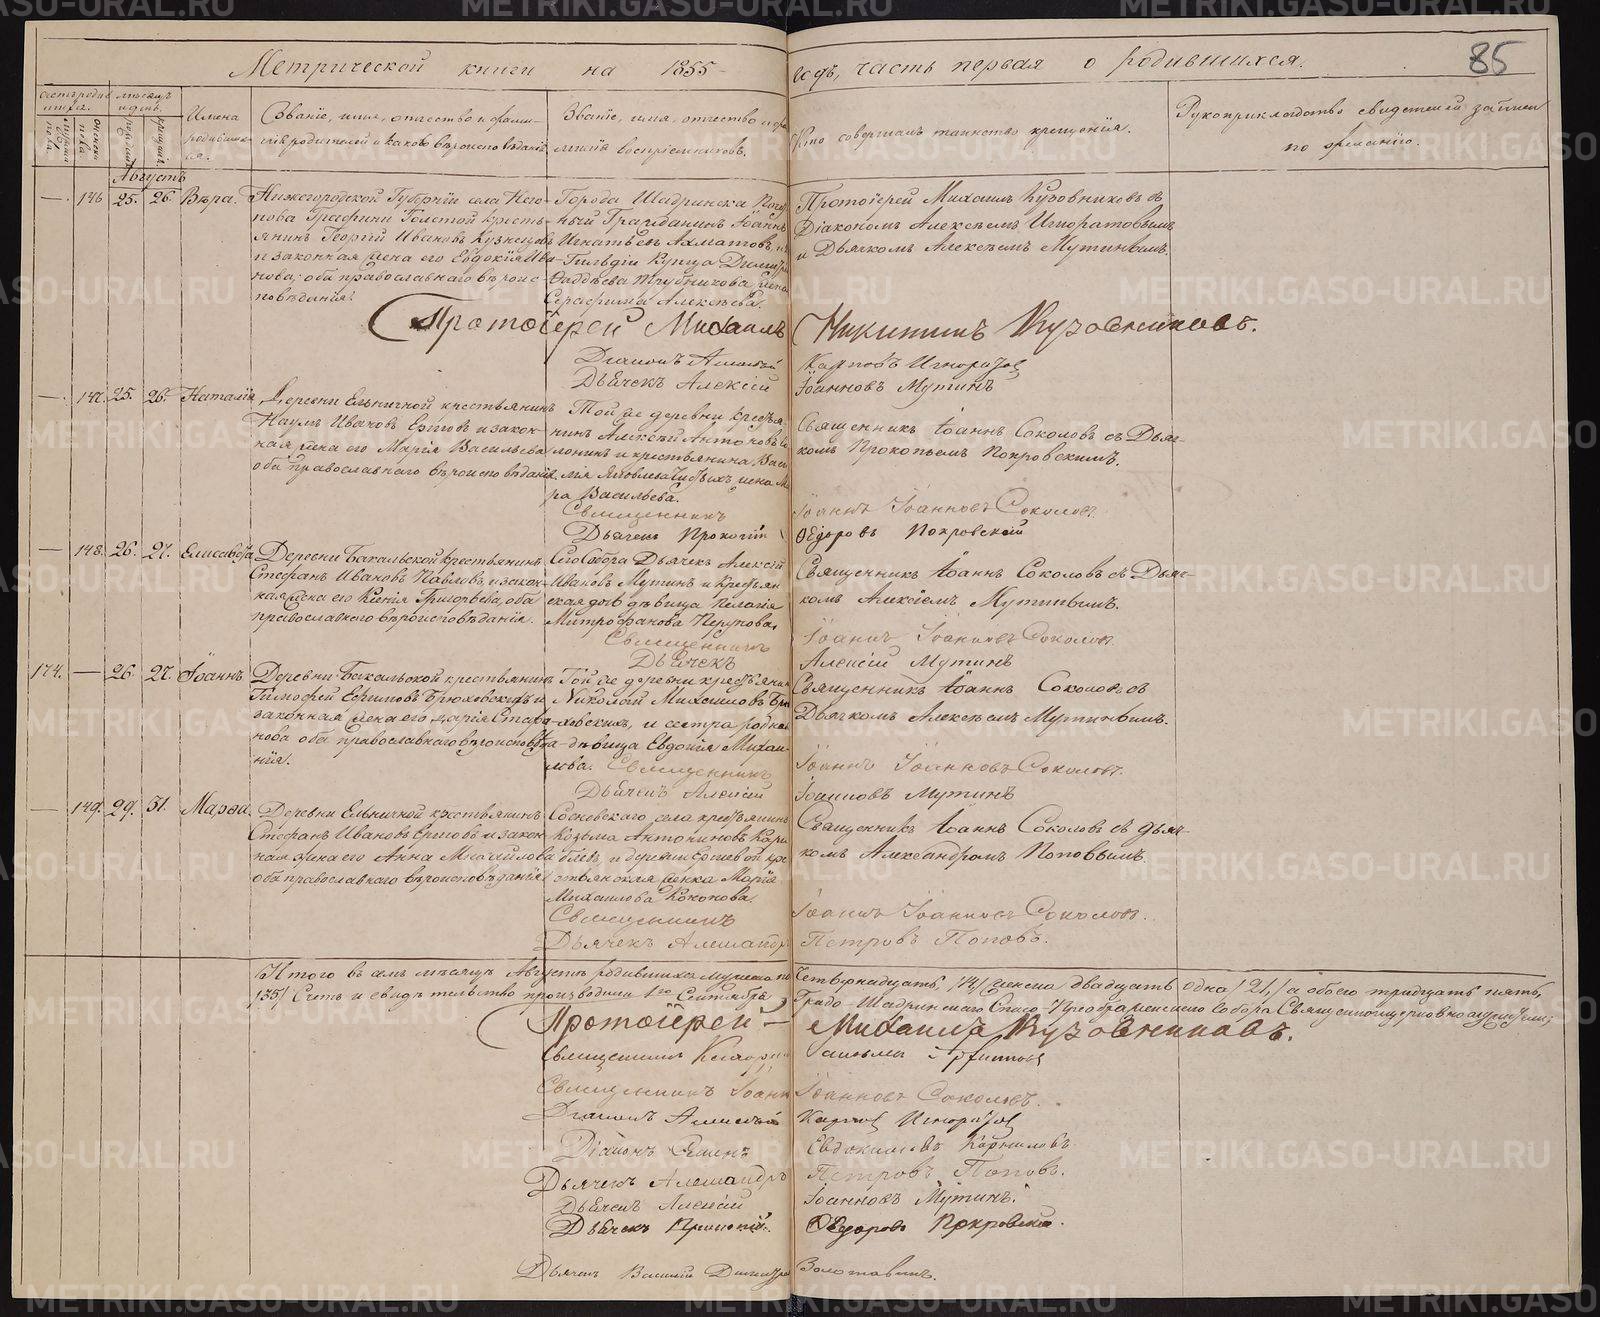 85
Метрической книги на 1855 годъ, часть первая о родившихся.
Имена родившихся.
Званіе, имя, отчество и фамилія родителей и какого вѣроисповѣданія.
Званіе, имя, отчество и фамилія воспріемниковъ.
Кто совершалъ таинство крещенія.
Рукоприкладство свидетелей записи по желанію.
Августъ
— 146 25. 26. Вѣра.
Нижегородской Губерніи села
Графини Толстой кресть-
янинъ Георгій Ивановъ Кузнецовъ
и законная жена его Евдокія Ива-
нова; оба православнаго вѣроис-
повѣданія.
Города Шадринска Почет-
ный Гражданинъ Іоаннъ
Игнатьевъ Ахматовъ, и
Гильдіи Купца Димитрія
Фаддѣева Трубникова жена
Серафима Алексѣева.
Протоіерей Михаилъ Кузовниковъ съ
Діакономъ Алексѣемъ Игноратовымъ
и Дьячкомъ Алексѣемъ Мутинымъ.
Протоіерей Михаилъ Никитинъ Кузовниковъ.
Діаконъ Алексѣй Карповъ
Дьячекъ Алексій Іоанновъ Мутинъ
— 147. 25. 26. Наталія
Деревни Ельничной крестьянинъ
Наумъ Ивановъ Ершовъ и закон-
ная жена его Марія Васильева
оба православнаго вѣроисповѣданія.
Той же деревни кресть-
нинъ Алексѣй Антоновъ
и крестьянина Васи-
лія Яковлева жена Ма-
ра Васильева.
Священникъ Іоаннъ Соколовъ съ Дьяч-
комъ Прокопьемъ Покровскимъ.
Священникъ Іоаннъ Іоанновъ Соколовъ.
Дьячекъ Прокопій Ѳедоровъ Покровскій
— 148. 26. 27. Елисавета
Деревни Бакальской крестьянинъ
Стефанъ Ивановъ Павловъ, и закон-
ная жена его Ксенія Григорьева, оба
православнаго вѣроисповѣданія.
Сего Собора Дьячекъ Алексій
Ивановъ Мутинъ и Крестьян-
ская дочь дѣвица Пелагія
Митрофанова Перунова.
Священникъ Іоаннъ Соколовъ съ Дьяч-
комъ Алексѣемъ Мутинымъ.
Священникъ Іоаннъ Іоанновъ Соколовъ
Дьячекъ Алексій Мутинъ
174. — 26. 27. Іоаннъ
Деревни Бакальской крестьянинъ
Тимофей Ефимовъ Брюховскихъ и
законная жена его Дарія
оба православнаго вѣроисповѣда-
нія.
Той же деревни крестьянинъ
Николай Михайловъ Брю-
ховскихъ, и сестра родная
дѣвица Евдокія Михаи-
лова.
Священникъ Іоаннъ Соколовъ съ
Дьячкомъ Алексѣемъ Мутинымъ.
Священникъ Іоаннъ Іоанновъ Соколовъ.
Дьячекъ Алексій Іоанновъ Мутинъ
— 149. 29. 31. Марѳа.
Деревни Ельничной крестьянинъ
Стефанъ Ивановъ Ершовъ и закон-
ная жена его Анна Михайлова
оба православнаго вѣроисповѣданія
Сосновскаго села крестьянинъ
Козьма Антониновъ
и деревни Ершевой кре-
стьянская женка Марія
Михаилова Кононова.
Священникъ Іоаннъ Соколовъ съ дьяч-
комъ Александромъ Поповымъ.
Священникъ Іоаннъ Іоанновъ Соколовъ.
Дьячекъ Александръ Петровъ Поповъ.
Итого въ семъ мѣсяцѣ Августѣ родившихся мужеска по- четырнадцать, /14/ женска двадцать одна /21,/ а обоего тридцать пять,
/35/ Счетъ и свидѣтельство производили 1го Сентября, Градо-Шадринскаго Спасо-Преображенскаго собора Священноцерковнослужители;
Протоіерей — Михаилъ Кузовниковъ.
Священникъ
Священникъ Іоаннъ Іоанновъ Соколовъ.
Діаконъ Алексѣй Карповъ
Діаконъ Евдокимовъ Корниловъ.
Дьячекъ Александръ Петровъ Поповъ.
Дьячекъ Алексій Іоанновъ Мутинъ.
Дьячекъ Прокопій Ѳедоровъ Покровскій.
Дьячекъ Василій Золотавинъ.
METRIKI.GASO-URAL.RU